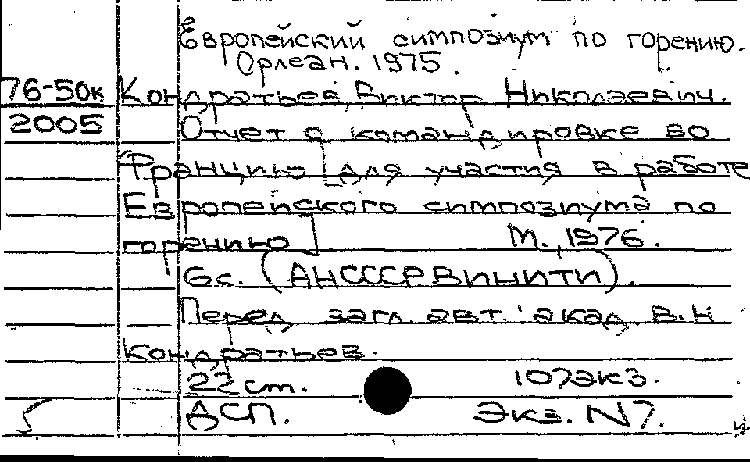 Европейский симпозиум по горению.
Орлеан. 1975.
76-50к Кондратьев, Виктор Николаевич.
2005 Отчет о командировке во
Францию [для участия в работе
Европейского симпозиума по
горению] М., 1976.
6с. (АН СССР ВИНИТИ).
Перед загл. авт: акад. В.Н
Кондратьев.
22 ст. 107экз.
ДСП. Экз. N7.